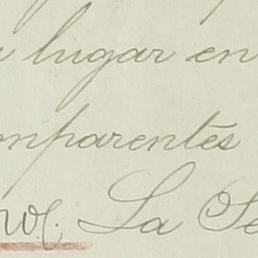 lugar en
omparentes
La Se